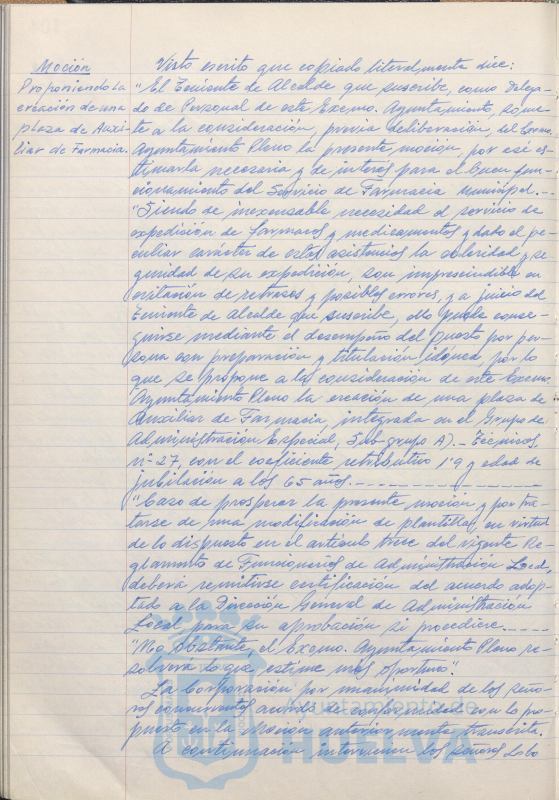 Moción
Proponiendo la
creación de una
plaza de Auxi-
liar de Farmacia.
Visto escrito que copiado literalmente dice:
"El Teniente de Alcalde que suscribe, como Delega-
do de Personal de este Excmo. Ayuntamiento, some-
te a la consideración, previa deliberación, del Excmo.
Ayuntamiento Pleno la presente moción, por así es-
timarla necesaria y de interés para el buen fun-
cionamiento del Servicio de Farmacia Municipal.-
"Siendo de inexcusable necesidad el servicio de
expedición de fármacos y medicamentos y dado el pe-
culiar carácter de estas asistencias la celeridad y se-
guridad de su expedición, son imprescindibles en
evitación de retrasos y posibles errores, y a juicio del
Teniente de Alcalde que suscribe, ello puede conse-
guirse mediante el desempeño del puesto por per-
sona con preparación y titulación idónea, por lo
que se propone a la consideración de este Excmo.
Ayuntamiento Pleno la creación de una plaza de
Auxiliar de Farmacia, integrada en el Grupo de
Administración Especial, Subgrupo A).- Técnicos
nº 27, con el coeficiente retributivo 1'9 y edad de
jubilación a los 65 años.-
"Caso de prosperar la presente moción y por tra-
tarse de una modificación de plantilla, en virtud
de lo dispuesto en el artículo trece del vigente Re-
glamento de Funcionarios de Administración Local,
deberá remitirse certificación del acuerdo adop-
tado a la Dirección General de Administración
Local para su aprobación si procediere.-
"No obstante, el Excmo. Ayuntamiento Pleno re-
solverá lo que estime más oportuno".
La Corporación por unanimidad de los seño-
res concurrentes acuerda de conformidad con lo pro-
puesto en la Moción anteriormente transcrita.
A continuación intervienen los señores Lobo
Ayuntamiento de
HUELVA